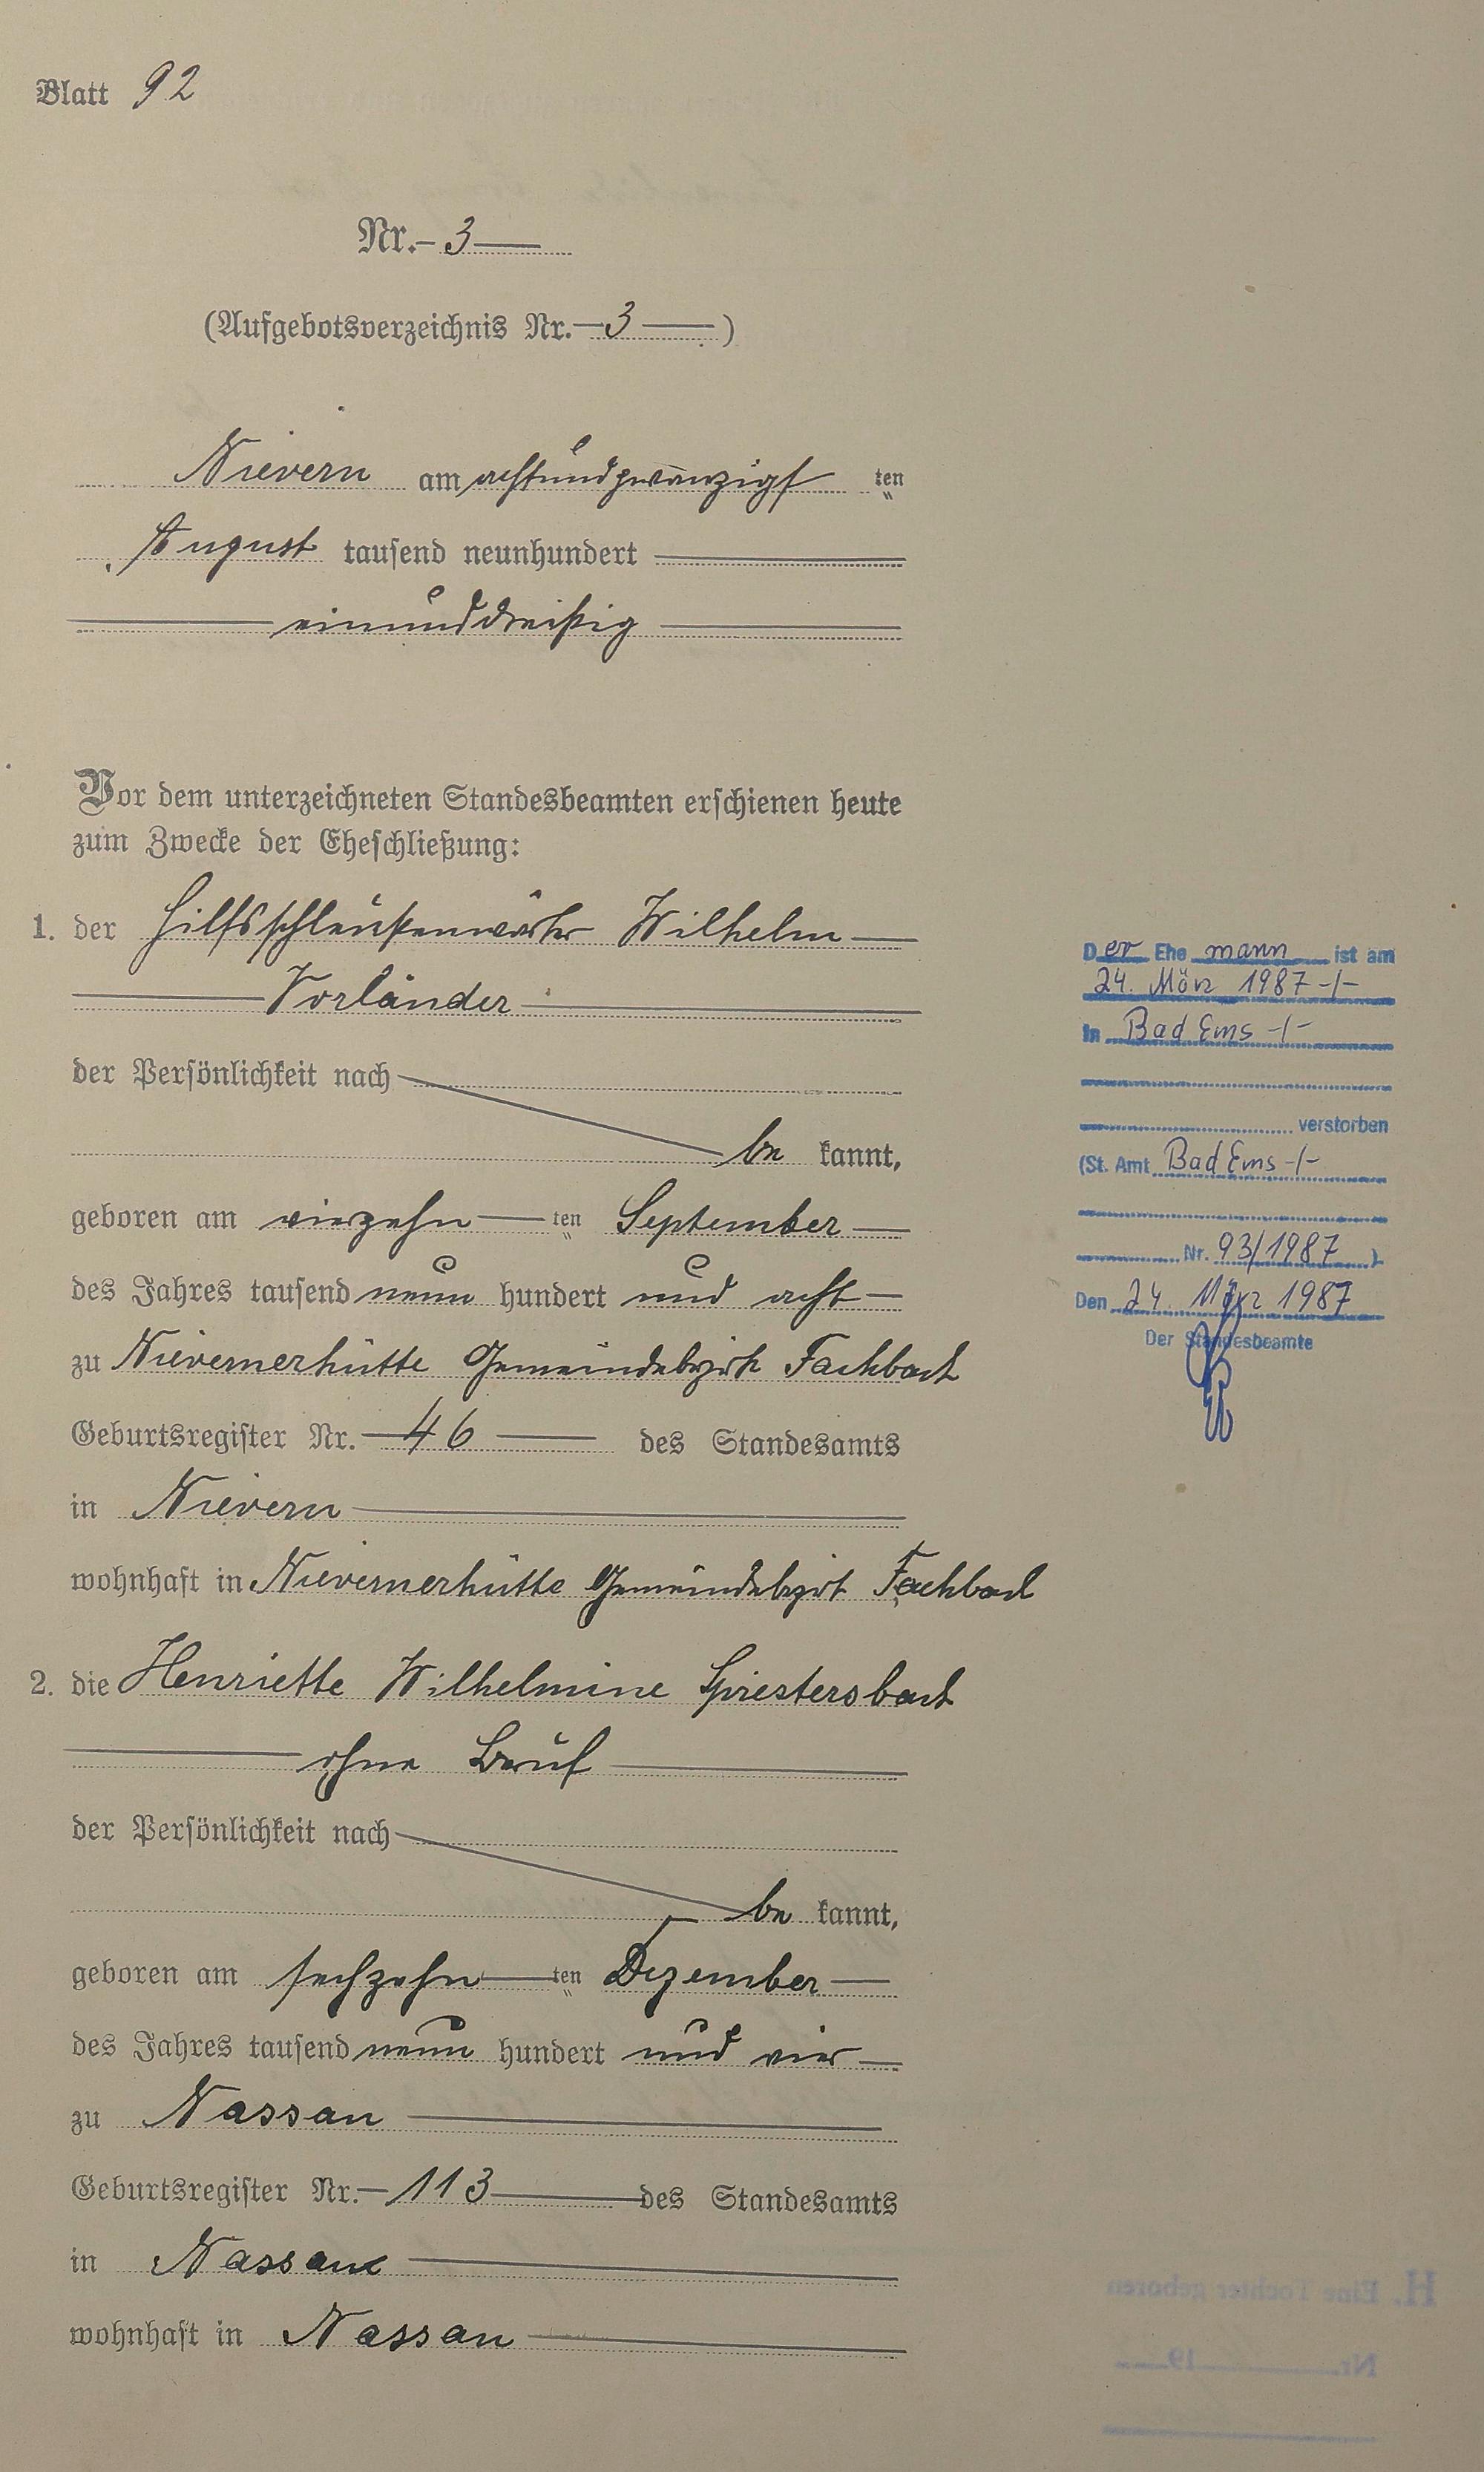 Blatt 92
Nr. 3
(Aufgebotsverzeichnis Nr. 3 )
Nievern am achtundzwanzigst ten
August tausend neunhundert
einunddreißig
Vor dem unterzeichneten Standesbeamten erschienen heute
zum Zwecke der Eheschließung:
1. der Hilfsschleußenwärter Wilhelm
Vorländer
der Persönlichkeit nach
be kannt,
geboren am vierzehn ten September
des Jahres tausend neun hundert und acht
zu Nievernerhütte Gemeindebezirk Fachbach
Geburtsregister Nr. 46 des Standesamts
in Nievern
wohnhaft in Nievernerhütte Gemeindebezirk Fachbach
2. die Henriette Wilhelmine Spriestersbach
ohne Beruf
der Persönlichkeit nach
be kannt,
geboren am sechzehn ten Dezember
des Jahres tausend neun hundert und vier
zu Nassau
Geburtsregister Nr. 113 des Standesamts
in Nassau
wohnhaft in Nassau
Der Ehe mann ist am
24. März 1987 -/-
in Bad Ems -/-
verstorben
(St. Amt Bad Ems -/-
Nr. 93/1987 )
Den 24. März 1987
Der Standesbeamte
H. Eine Tochter geboren
Nr. 19